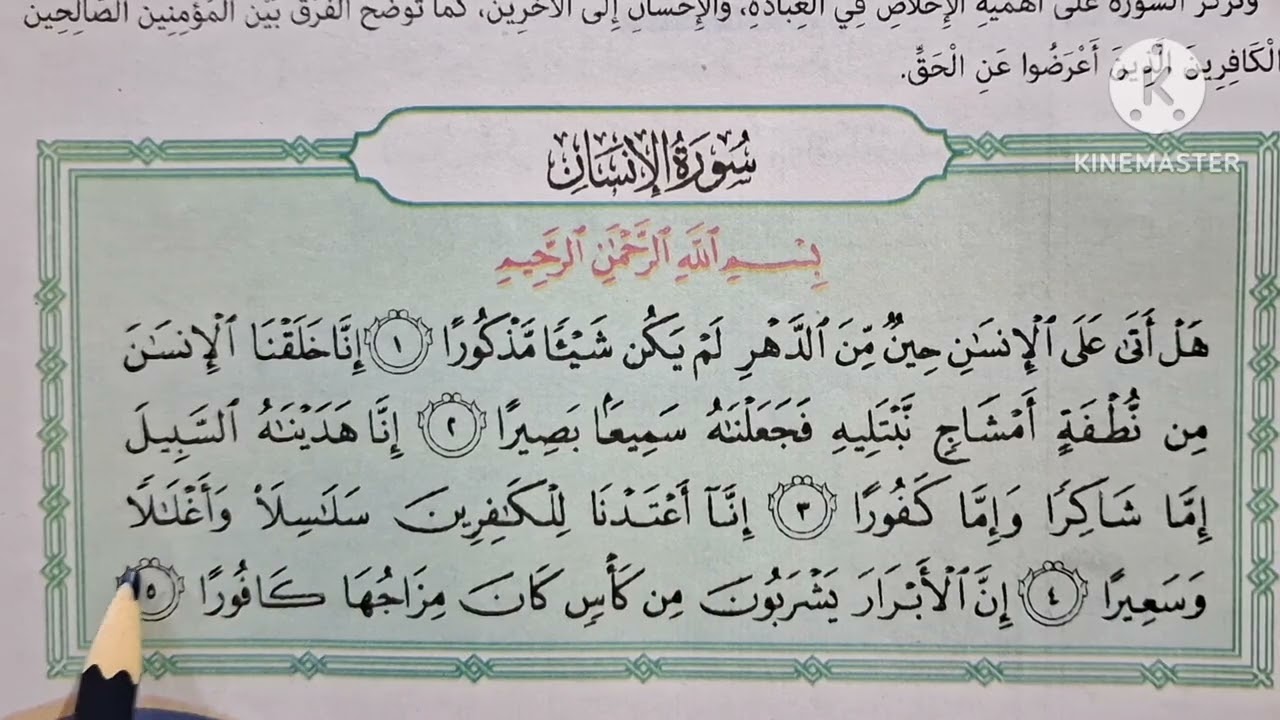 وتركز السورة على أهمية الإخلاص في العبادة، والإحسان إلى الآخرين، كما توضح الفرق بين المؤمنين الصالحين
الْكَافِرِينَ الَّذِينَ أَعْرَضُوا عَنِ الْحَقِّ.
KINEMASTER
سُورَةُ الإِنسَانِ
بِسْمِ ٱللَّهِ ٱلرَّحْمَٰنِ ٱلرَّحِيمِ
هَلْ أَتَىٰ عَلَى ٱلْإِنسَٰنِ حِينٌ مِّنَ ٱلدَّهْرِ لَمْ يَكُن شَيْـًٔا مَّذْكُورًا ١ إِنَّا خَلَقْنَا ٱلْإِنسَٰنَ
مِن نُّطْفَةٍ أَمْشَاجٍ نَّبْتَلِيهِ فَجَعَلْنَٰهُ سَمِيعًۢا بَصِيرًا ٢ إِنَّا هَدَيْنَٰهُ ٱلسَّبِيلَ
إِمَّا شَاكِرًا وَإِمَّا كَفُورًا ٣ إِنَّآ أَعْتَدْنَا لِلْكَٰفِرِينَ سَلَٰسِلَا۟ وَأَغْلَٰلًا
وَسَعِيرًا ٤ إِنَّ ٱلْأَبْرَارَ يَشْرَبُونَ مِن كَأْسٍ كَانَ مِزَاجُهَا كَافُورًا ٥